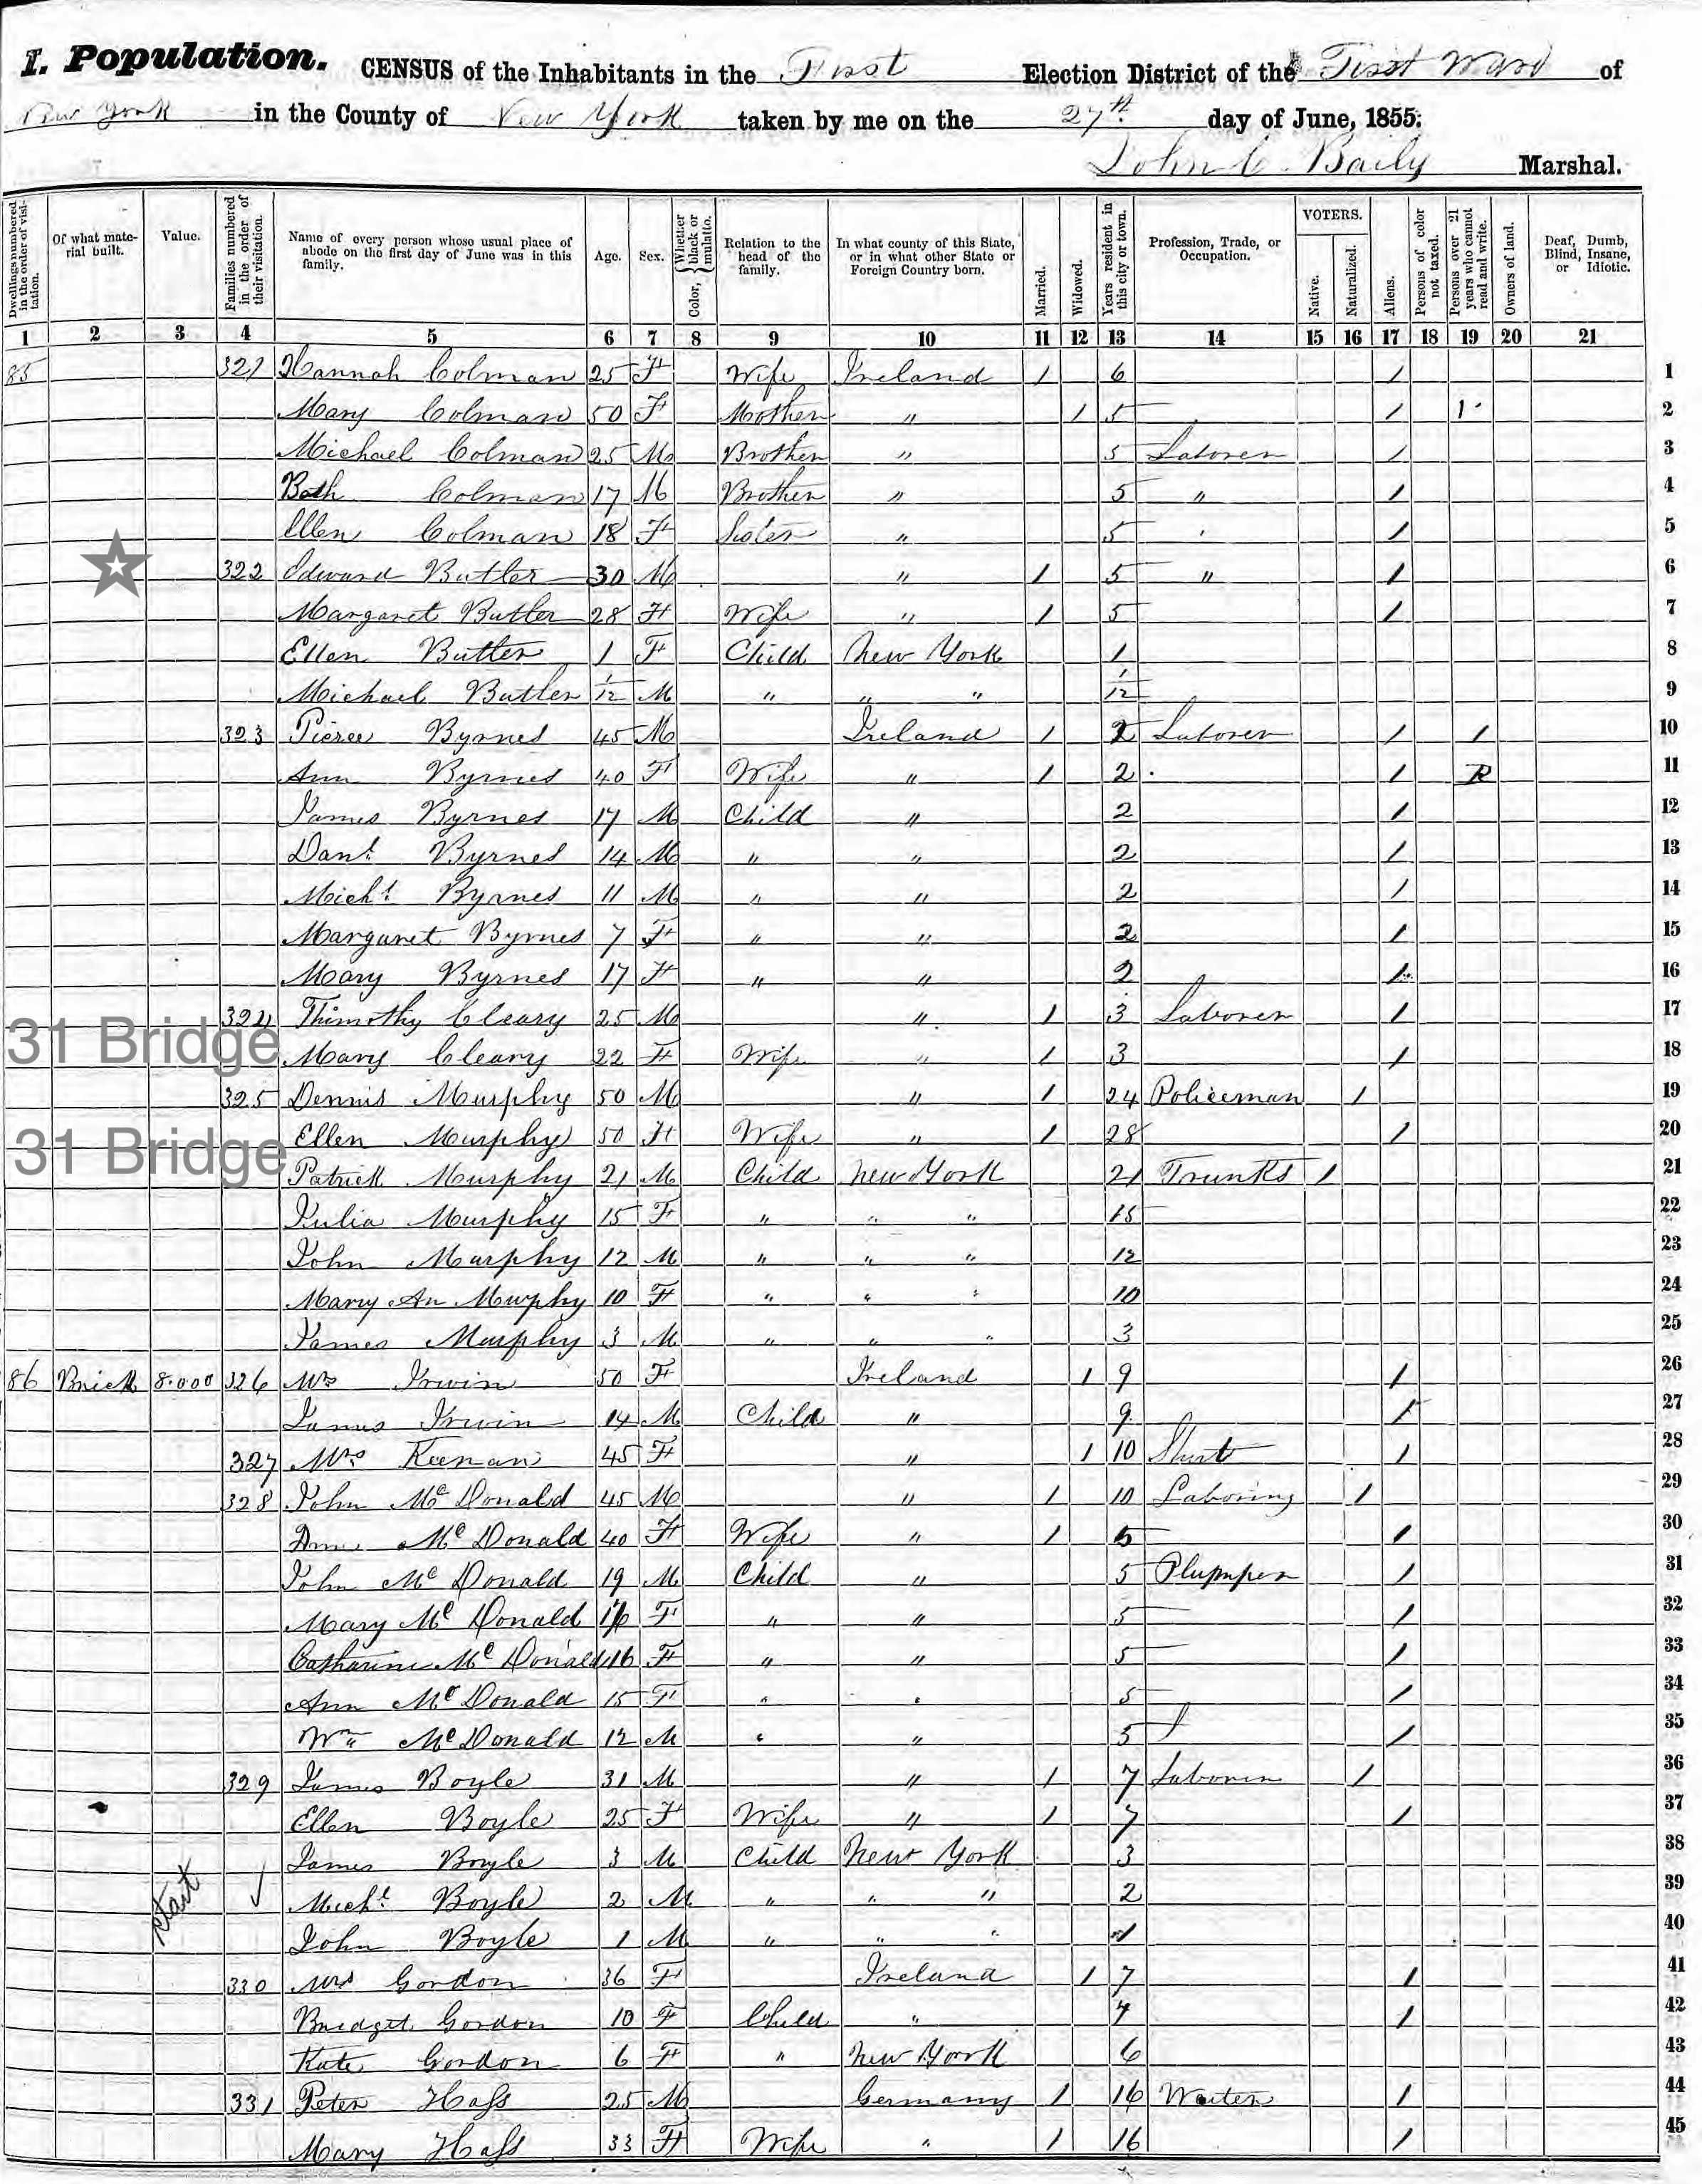 I. Population. CENSUS of the Inhabitants in the First Election District of the First Ward of
New York in the County of New York taken by me on the 27th day of June, 1855.
John C. Baily Marshal.
Dwellings numbered in the order of visitation. Of what material built. Value. Families numbered in the order of their visitation. Name of every person whose usual place of abode on the first day of June was in this family. Age. Sex. Color, Whether black or mulatto. Relation to the head of the family. In what county of this State, or in what other State or Foreign Country born. Married. Widowed. Years resident in this city or town. Profession, Trade, or Occupation. VOTERS. Native. Naturalized. Aliens. Persons of color not taxed. Persons over 21 years who cannot read and write. Owners of land. Deaf, Dumb, Blind, Insane, or Idiotic.
1 2 3 4 5 6 7 8 9 10 11 12 13 14 15 16 17 18 19 20 21
85 321 Hannah Colman 25 F Wife Ireland 1 6 1 1
Mary Colman 50 F Mother " 1 5 1 1 2
Michael Colman 25 M Brother " 5 Laborer 1 3
Colman 17 M Brother " 5 " 1 4
Ellen Colman 18 F Sister " 5 1 5
322 Edward Butler 30 M " 1 5 " 1 6
Margaret Butler 28 F Wife " 1 5 1 7
Ellen Butler 1 F Child New York 1 8
Michael Butler 1/12 M " " " 1/12 9
323 Pierce Byrnes 45 M Ireland 1 2 Laborer 1 1 10
Ann Byrnes 40 F Wife " 1 2 1 R 11
James Byrnes 17 M Child " 2 1 12
Danl Byrnes 14 M " " 2 1 13
Michl Byrnes 11 M " " 2 1 14
Margaret Byrnes 7 F " " 2 1 15
Mary Byrnes 17 F " " 2 1 16
324 Thimothy Cleary 25 M " 1 3 Laborer 1 17
31 Bridge
Mary Cleary 22 F Wife " 1 3 1 18
325 Dennis Murphy 50 M " 1 24 Policeman 1 19
31 Bridge
Ellen Murphy 50 F Wife " 1 28 1 20
Patrick Murphy 21 M Child New York 21 Trunks 1 21
Julia Murphy 15 F " " " 15 22
John Murphy 12 M " " " 12 23
Mary An Murphy 10 F " " " 10 24
James Murphy 3 M " " " 3 25
86 Brick 8.000 326 Mrs Irwin 50 F Ireland 1 9 1 26
James Irwin 14 M Child " 9 1 27
327 Mrs Keenan 45 F " 1 10 1 28
328 John Mc Donald 45 M " 1 10 Laboring 1 29
Mc Donald 40 F Wife " 1 5 1 30
John Mc Donald 19 M Child " 5 Plumper 1 31
Mary Mc Donald F " " 5 1 32
Catharine Mc Donald 16 F " " 5 1 33
Ann Mc Donald 15 F " " 5 1 34
Wm Mc Donald 12 M " " 5 1 35
329 James Boyle 31 M " 1 7 Laborer 1 36
Ellen Boyle 25 F Wife " 1 7 1 37
James Boyle 3 M Child New York 3 38
start Michl Boyle 2 M " " " 2 39
John Boyle 1 M " " " 1 40
330 Mrs Gordon 36 F Ireland 1 7 1 41
Bridget Gordon 10 F Child " 7 1 42
Kate Gordon 6 F " New York 6 43
331 Peter Hass 25 M Germany 1 16 Waiter 1 44
Mary Hass 33 F Wife " 1 16 1 45